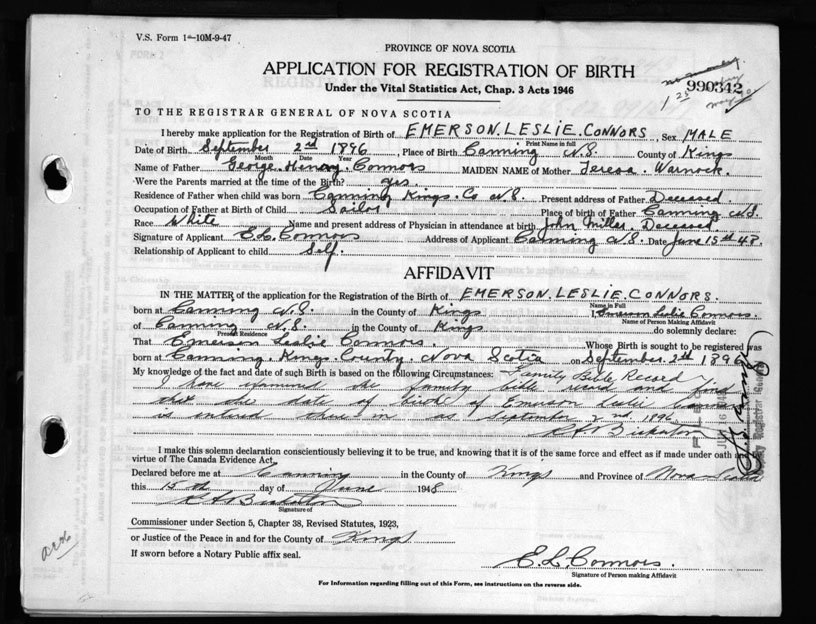 V.S. Form 1—10M-9-47
PROVINCE OF NOVA SCOTIA
APPLICATION FOR REGISTRATION OF BIRTH
Under the Vital Statistics Act, Chap. 3 Acts 1946
990342
1 25
TO THE REGISTRAR GENERAL OF NOVA SCOTIA
I hereby make application for the Registration of Birth of EMERSON. LESLIE. CONNORS, Sex MALE
Print Name in full
Date of Birth September 2nd 1896 Place of Birth Canning N.S. County of Kings
Month Date Year
Name of Father George. Henry. Connors MAIDEN NAME of Mother Teresa. Warnock.
Were the Parents married at the time of the Birth? yes.
Residence of Father when child was born Canning Kings. Co N.S. Present address of Father Deceased.
Occupation of Father at Birth of Child Sailor Place of birth of Father Canning N.S.
Race White Name and present address of Physician in attendance at birth John Miller. Deceased.
Signature of Applicant E.L. Connors Address of Applicant Canning N.S. Date June 15th 48.
Relationship of Applicant to child Self.
AFFIDAVIT
IN THE MATTER of the application for the Registration of the Birth of EMERSON. LESLIE. CONNORS.
Name in Full
born at Canning N.S. in the County of Kings I, Emerson Leslie Connors.
Name of Person Making Affidavit
of Canning N.S. in the County of Kings do solemnly declare:
Present Residence
That Emerson Leslie Connors. Whose Birth is sought to be registered was
born at Canning. Kings. County. Nova Scotia on September. 2nd 1896
My knowledge of the fact and date of such Birth is based on the following Circumstances: Family Bible Record
I have examined the family bible record and find
that the date of birth of Emerson Leslie Connors
is entered there in as September 2nd 1896
I make this solemn declaration conscientiously believing it to be true, and knowing that it is of the same force and effect as if made under oath and
virtue of The Canada Evidence Act.
Declared before me at Canning in the County of Kings and Province of Nova Scotia
this 15th day of June 1948
Signature of
Commissioner under Section 5, Chapter 38, Revised Statutes, 1923,
or Justice of the Peace in and for the County of Kings
If sworn before a Notary Public affix seal.
E.L. Connors.
Signature of Person making Affidavit
For Information regarding filling out of this Form, see instructions on the reverse side.